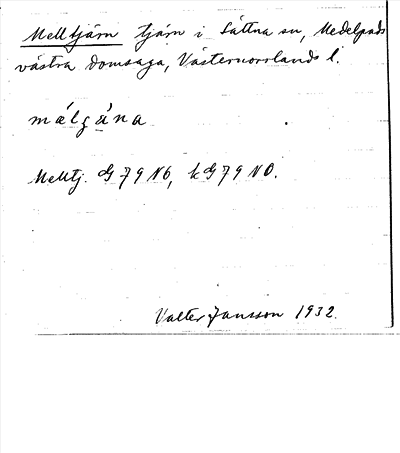 Melltjärn tjärn i Sättna sn, Medelpads
västra domsaga, Västernorrlands l.
Melltj. G 79 NO, k G 79 NO.
Valter Jansson 1932.